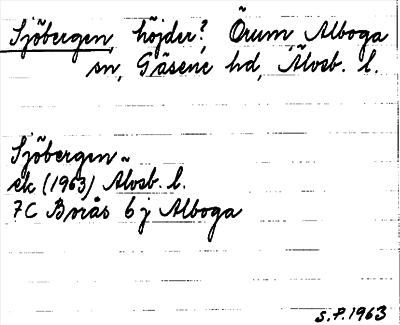 Sjöbergen, höjder? Örum Alboga
sn, Gäsene hd, Älvsb. l.
Sjöbergen
ek (1963) Älvsb. l.
7C Borås 6 j Alboga
S.P. 1963